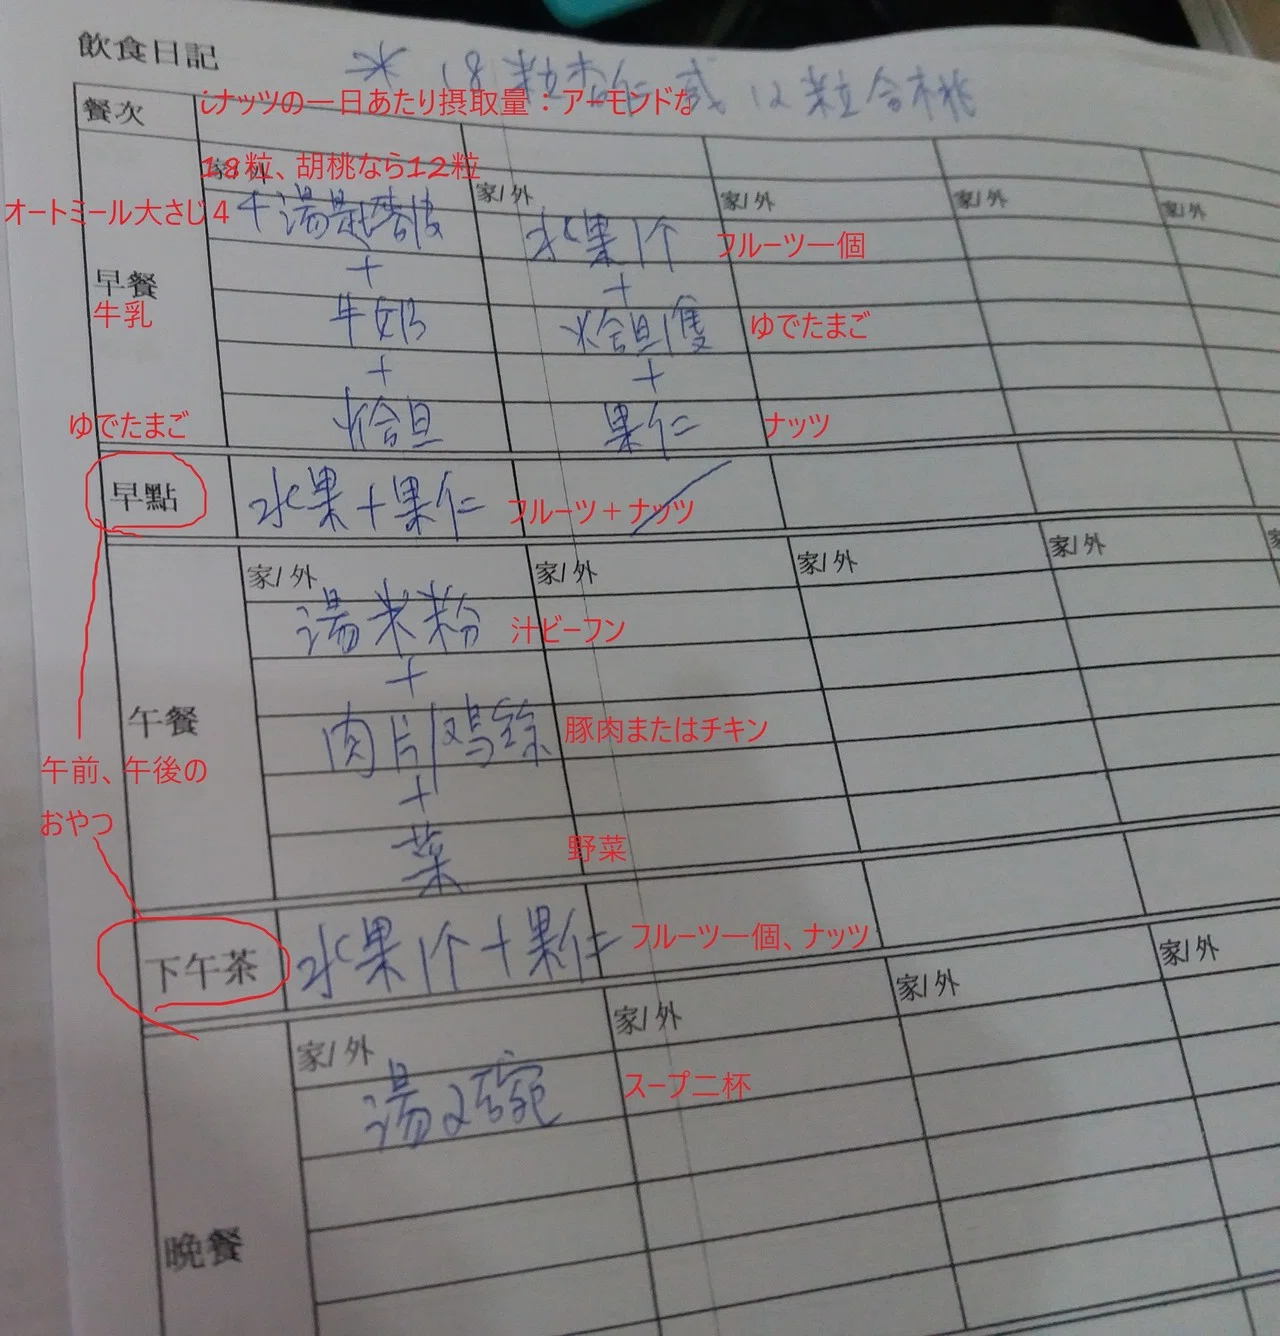 飲食日記
* 18粒杏仁或 12粒合桃
餐次
ナッツの一日あたり摂取量：アーモンドな
18粒、胡桃なら12粒
家/外 家/外 家/外 家/外
オートミール大さじ４
湯匙麥皮 水果1个 フルーツ一個
+ +
早餐
牛乳
牛奶 烚旦1隻 ゆでたまご
+ +
ゆでたまご
烚旦 果仁 ナッツ
早點 水果+果仁 フルーツ＋ナッツ
家/外 家/外 家/外 家/外 家
湯米粉 汁ビーフン
+
午餐
肉片/鸡 豚肉またはチキン
午前、午後の
おやつ
+
菜 野菜
下午茶 水果1个+果仁 フルーツ一個、ナッツ
家/外 家/外 家/外 家/外
湯2碗 スープ二杯
晚餐